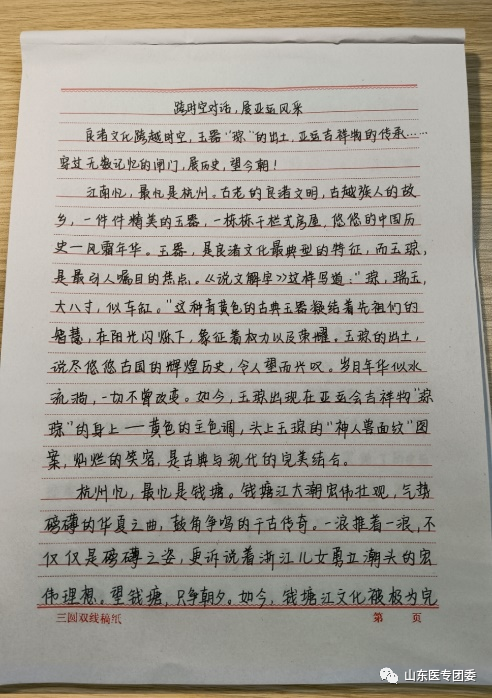 跨时空对话，展亚运风采
良渚文化跨越时空，玉器"琮"的出土，亚运吉祥物的传承……
穿过无数记忆的闸门，展历史，望今朝！
江南忆，最忆是杭州。古老的良渚文明，古越族人的故
乡，一件件精美的玉器，一栋栋干栏式房屋，悠悠的中国历
史一风霜年华。玉器，是良渚文化最典型的特征，而玉琮，
是最引人瞩目的焦点。《说文解字》这样写道："琮，瑞玉，
大八寸，似车缸。"这种青黄色的古典玉器凝结着先祖们的
智慧，在阳光闪烁下，象征着权力以及荣耀。玉琮的出土，
说尽悠悠古国的辉煌历史，令人望而兴叹。岁月年华似水
流淌，一切不曾改变。如今，玉琮出现在亚运会吉祥物"琮
琮"的身上——黄色的主色调，头上玉琮的"神人兽面纹"图
案，灿烂的笑容，是古典与现代的完美结合。
杭州忆，最忆是钱塘。钱塘江大潮宏伟壮观，气势
磅礴的华夏之曲，鼓角争鸣的千古传奇。一浪推着一浪，不
仅仅是磅礴之姿，更诉说着浙江儿女勇立潮头的宏
伟理想。望钱塘，只争朝夕。如今，钱塘江文化被极为完
三圆双线稿纸
第 页
山东医专团委